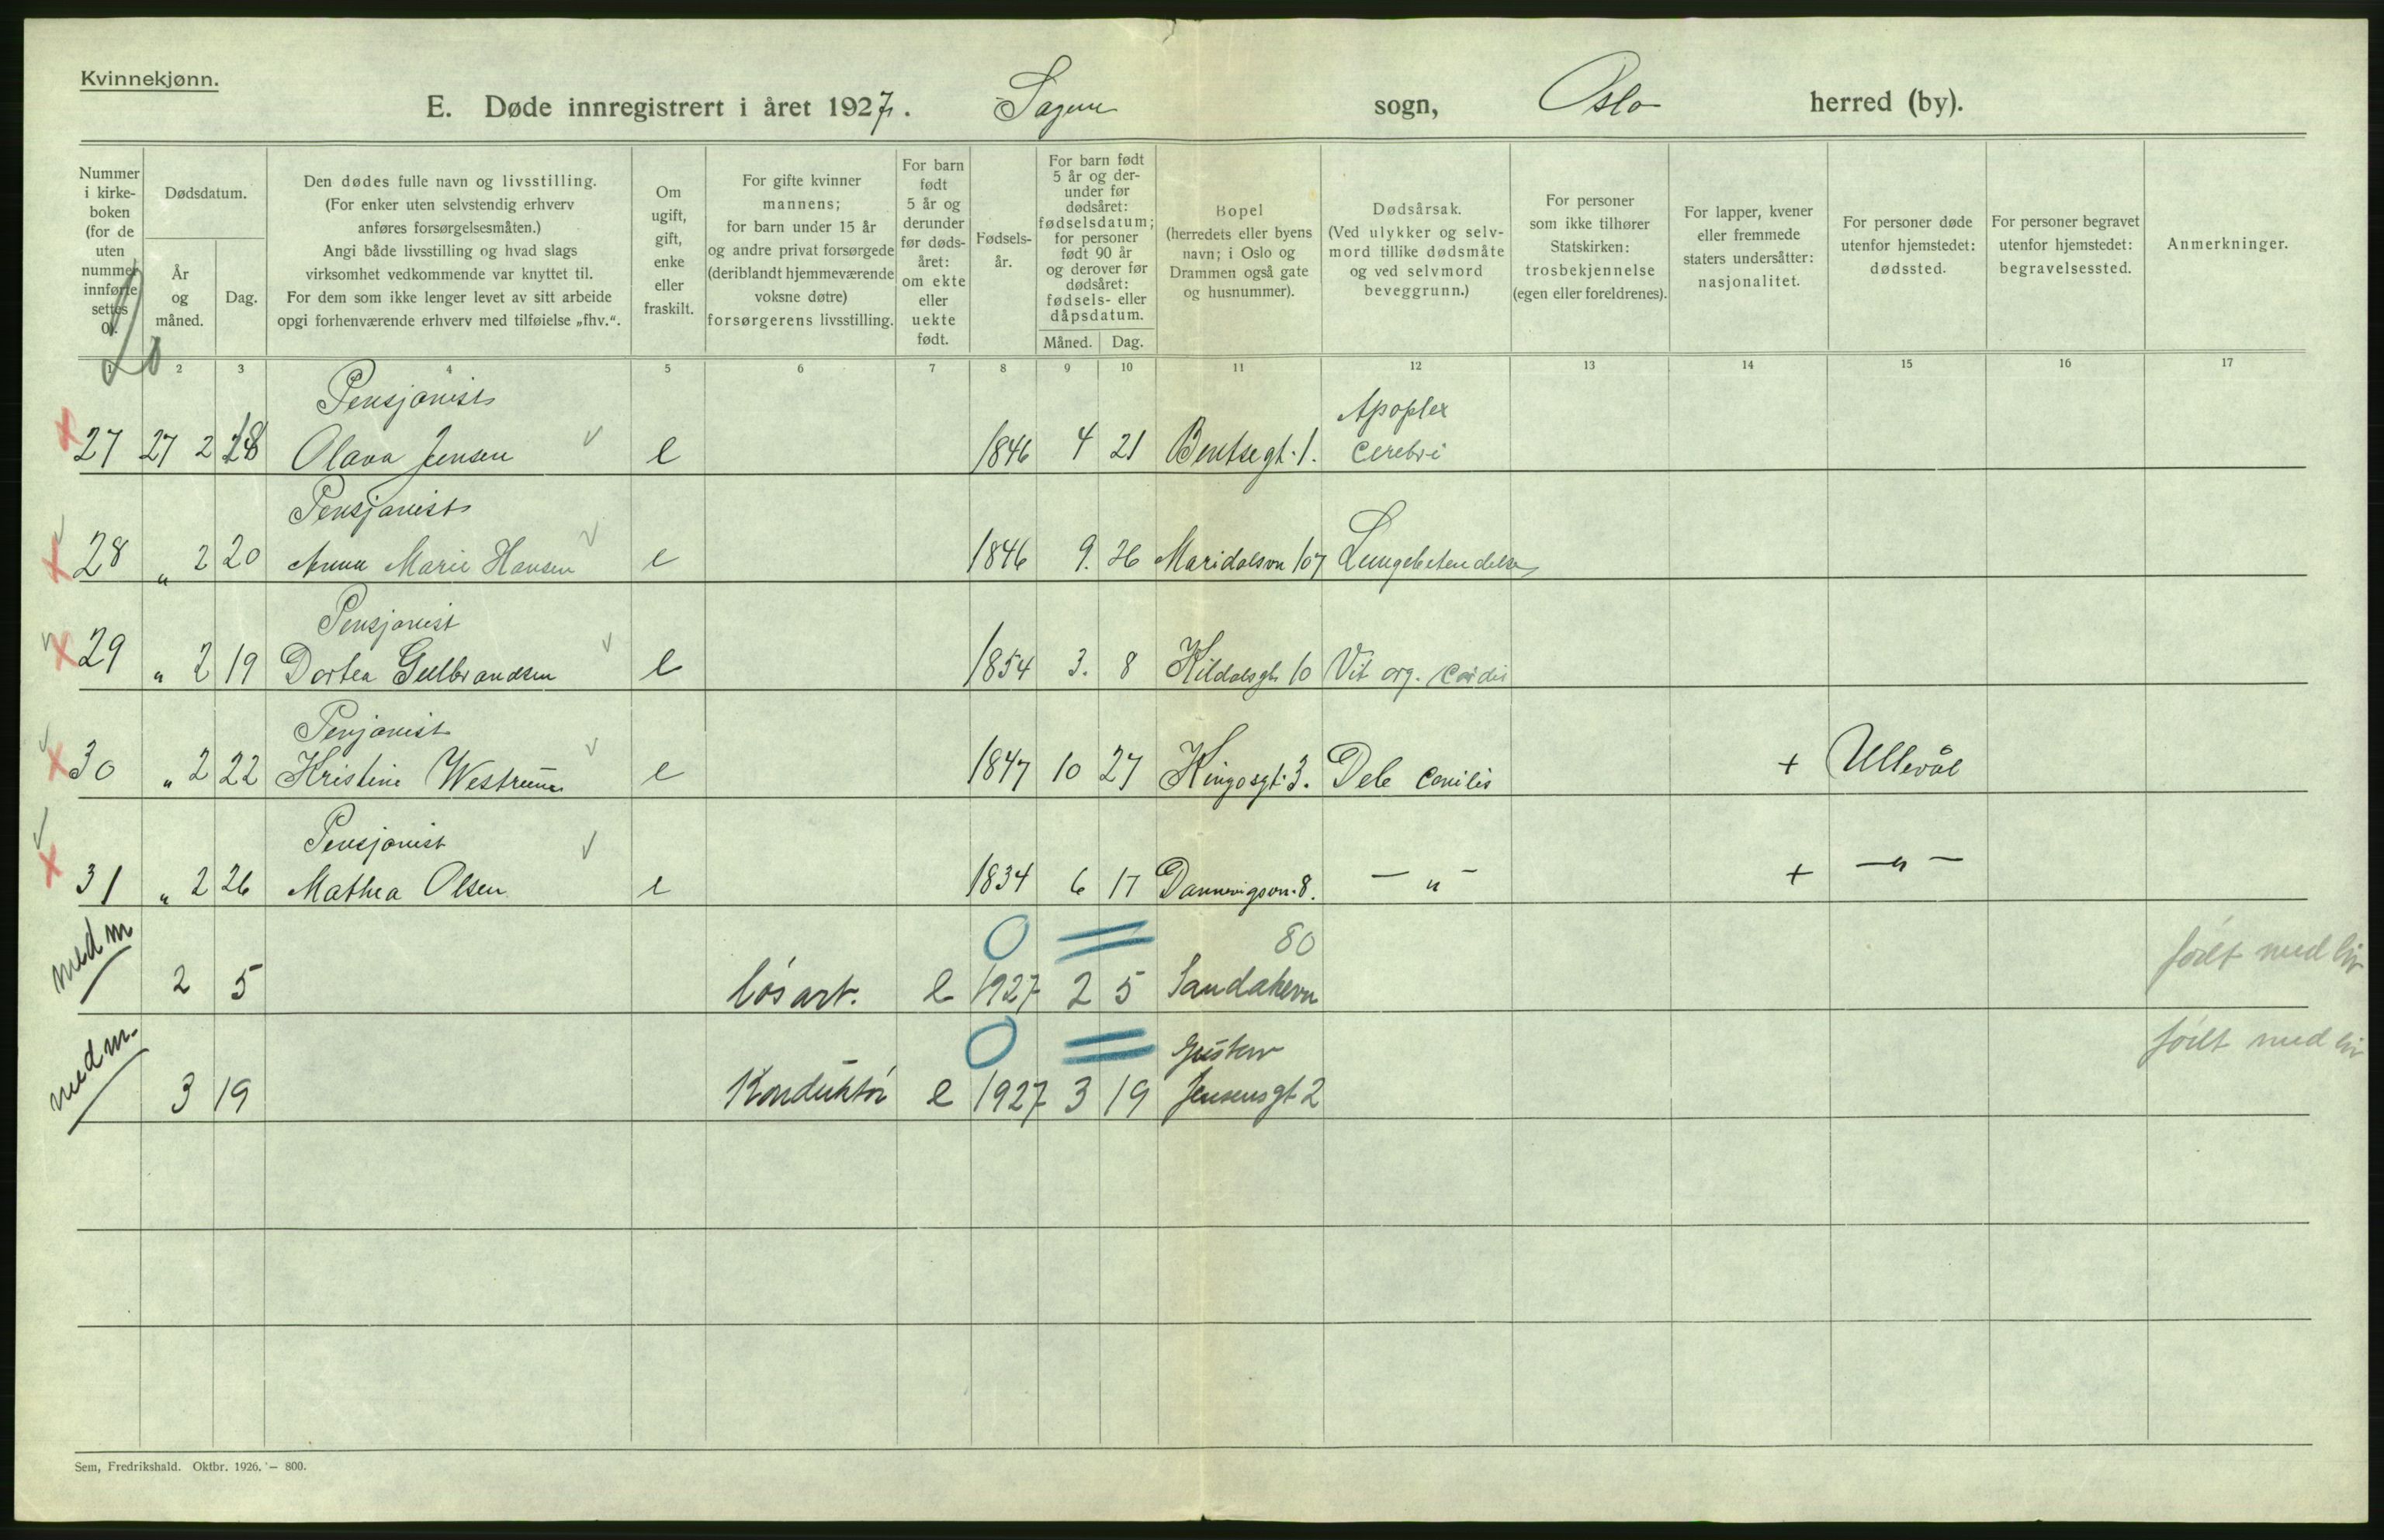 Kvinnekjønn.
E. Døde innregistrert i året 1927. Sagene sogn, Oslo herred (by).
Nummer i kirke-boken (for de uten nummer innførte settes 0).
Dødsdatum.
År og måned.
Dag.
Den dødes fulle navn og livsstilling.
(For enker uten selvstendig erhverv
anføres forsørgelsesmåten.)
Angi både livsstilling og hvad slags
virksomhet vedkommende var knyttet til.
For dem som ikke lenger levet av sitt arbeide
opgi forhenværende erhverv med tilføielse „fhv.“.
Om ugift, gift, enke eller fraskilt.
For gifte kvinner
mannens;
for barn under 15 år
og andre privat forsørgede
(deriblandt hjemmeværende
voksne døtre)
forsørgerens livsstilling.
For barn født 5 år og derunder før døds-året: om ekte eller uekte født.
Fødsels-år.
For barn født
5 år og der-
under før
dødsåret:
fødselsdatum;
for personer
født 90 år
og derover før
dødsåret:
fødsels- eller
dåpsdatum.
Måned. Dag.
Bopel
(herredets eller byens
navn; i Oslo og
Drammen også gate
og husnummer).
Dødsårsak.
(Ved ulykker og selv-
mord tillike dødsmåte
og ved selvmord
beveggrunn.)
For personer
som ikke tilhører
Statskirken:
trosbekjennelse
(egen eller foreldrenes).
For lapper, kvener
eller fremmede
staters undersåtter:
nasjonalitet.
For personer døde
utenfor hjemstedet:
dødssted.
For personer begravet
utenfor hjemstedet:
begravelsessted.
Anmerkninger.
1 2 3 4 5 6 7 8 9 10 11 12 13 14 15 16 17
Pensjonist Apoplex
27 27 2 18 Olava Jensen e 1846 4 21 Bentsegt. 1. Cerebri
Pensjonist
28 „ 2 20 Anna Marie Hansen e 1846 9. 26 Maridalsvn 107 Lungebetendelse
Pensjonist
29 „ 2 19 Dortea Gulbrandsen e 1854 3. 8 Kildalsgt. 10 Vit org. Cordis
Penjonist
30 „ 2 22 Kristine Westrum e 1847 10 27 Kingosgt. 3. Deb senilis + Ullevål
Pensjonist
31 „ 2 26 Mathea Olsen e 1834 6 17 Dannevigsvn. 8. — „ — + — „ —
0 = 80
med m 2 5 løsarb. e 1927 2 5 Sandakervn født med liv
0 = Gustav
med m. 3 19 Konduktør e 1927 3 19 Jensensgt 2 født med liv
Sem, Fredrikshald. Oktbr. 1926. — 800.